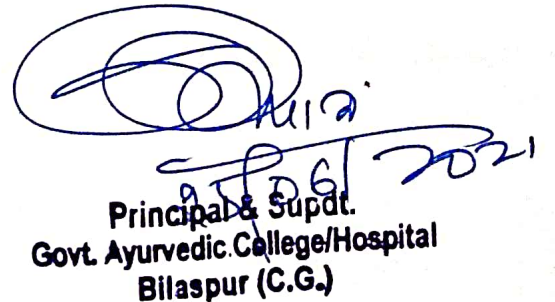 2021
Principal & Supdt.
Govt. Ayurvedic College/Hospital
Bilaspur (C.G.)